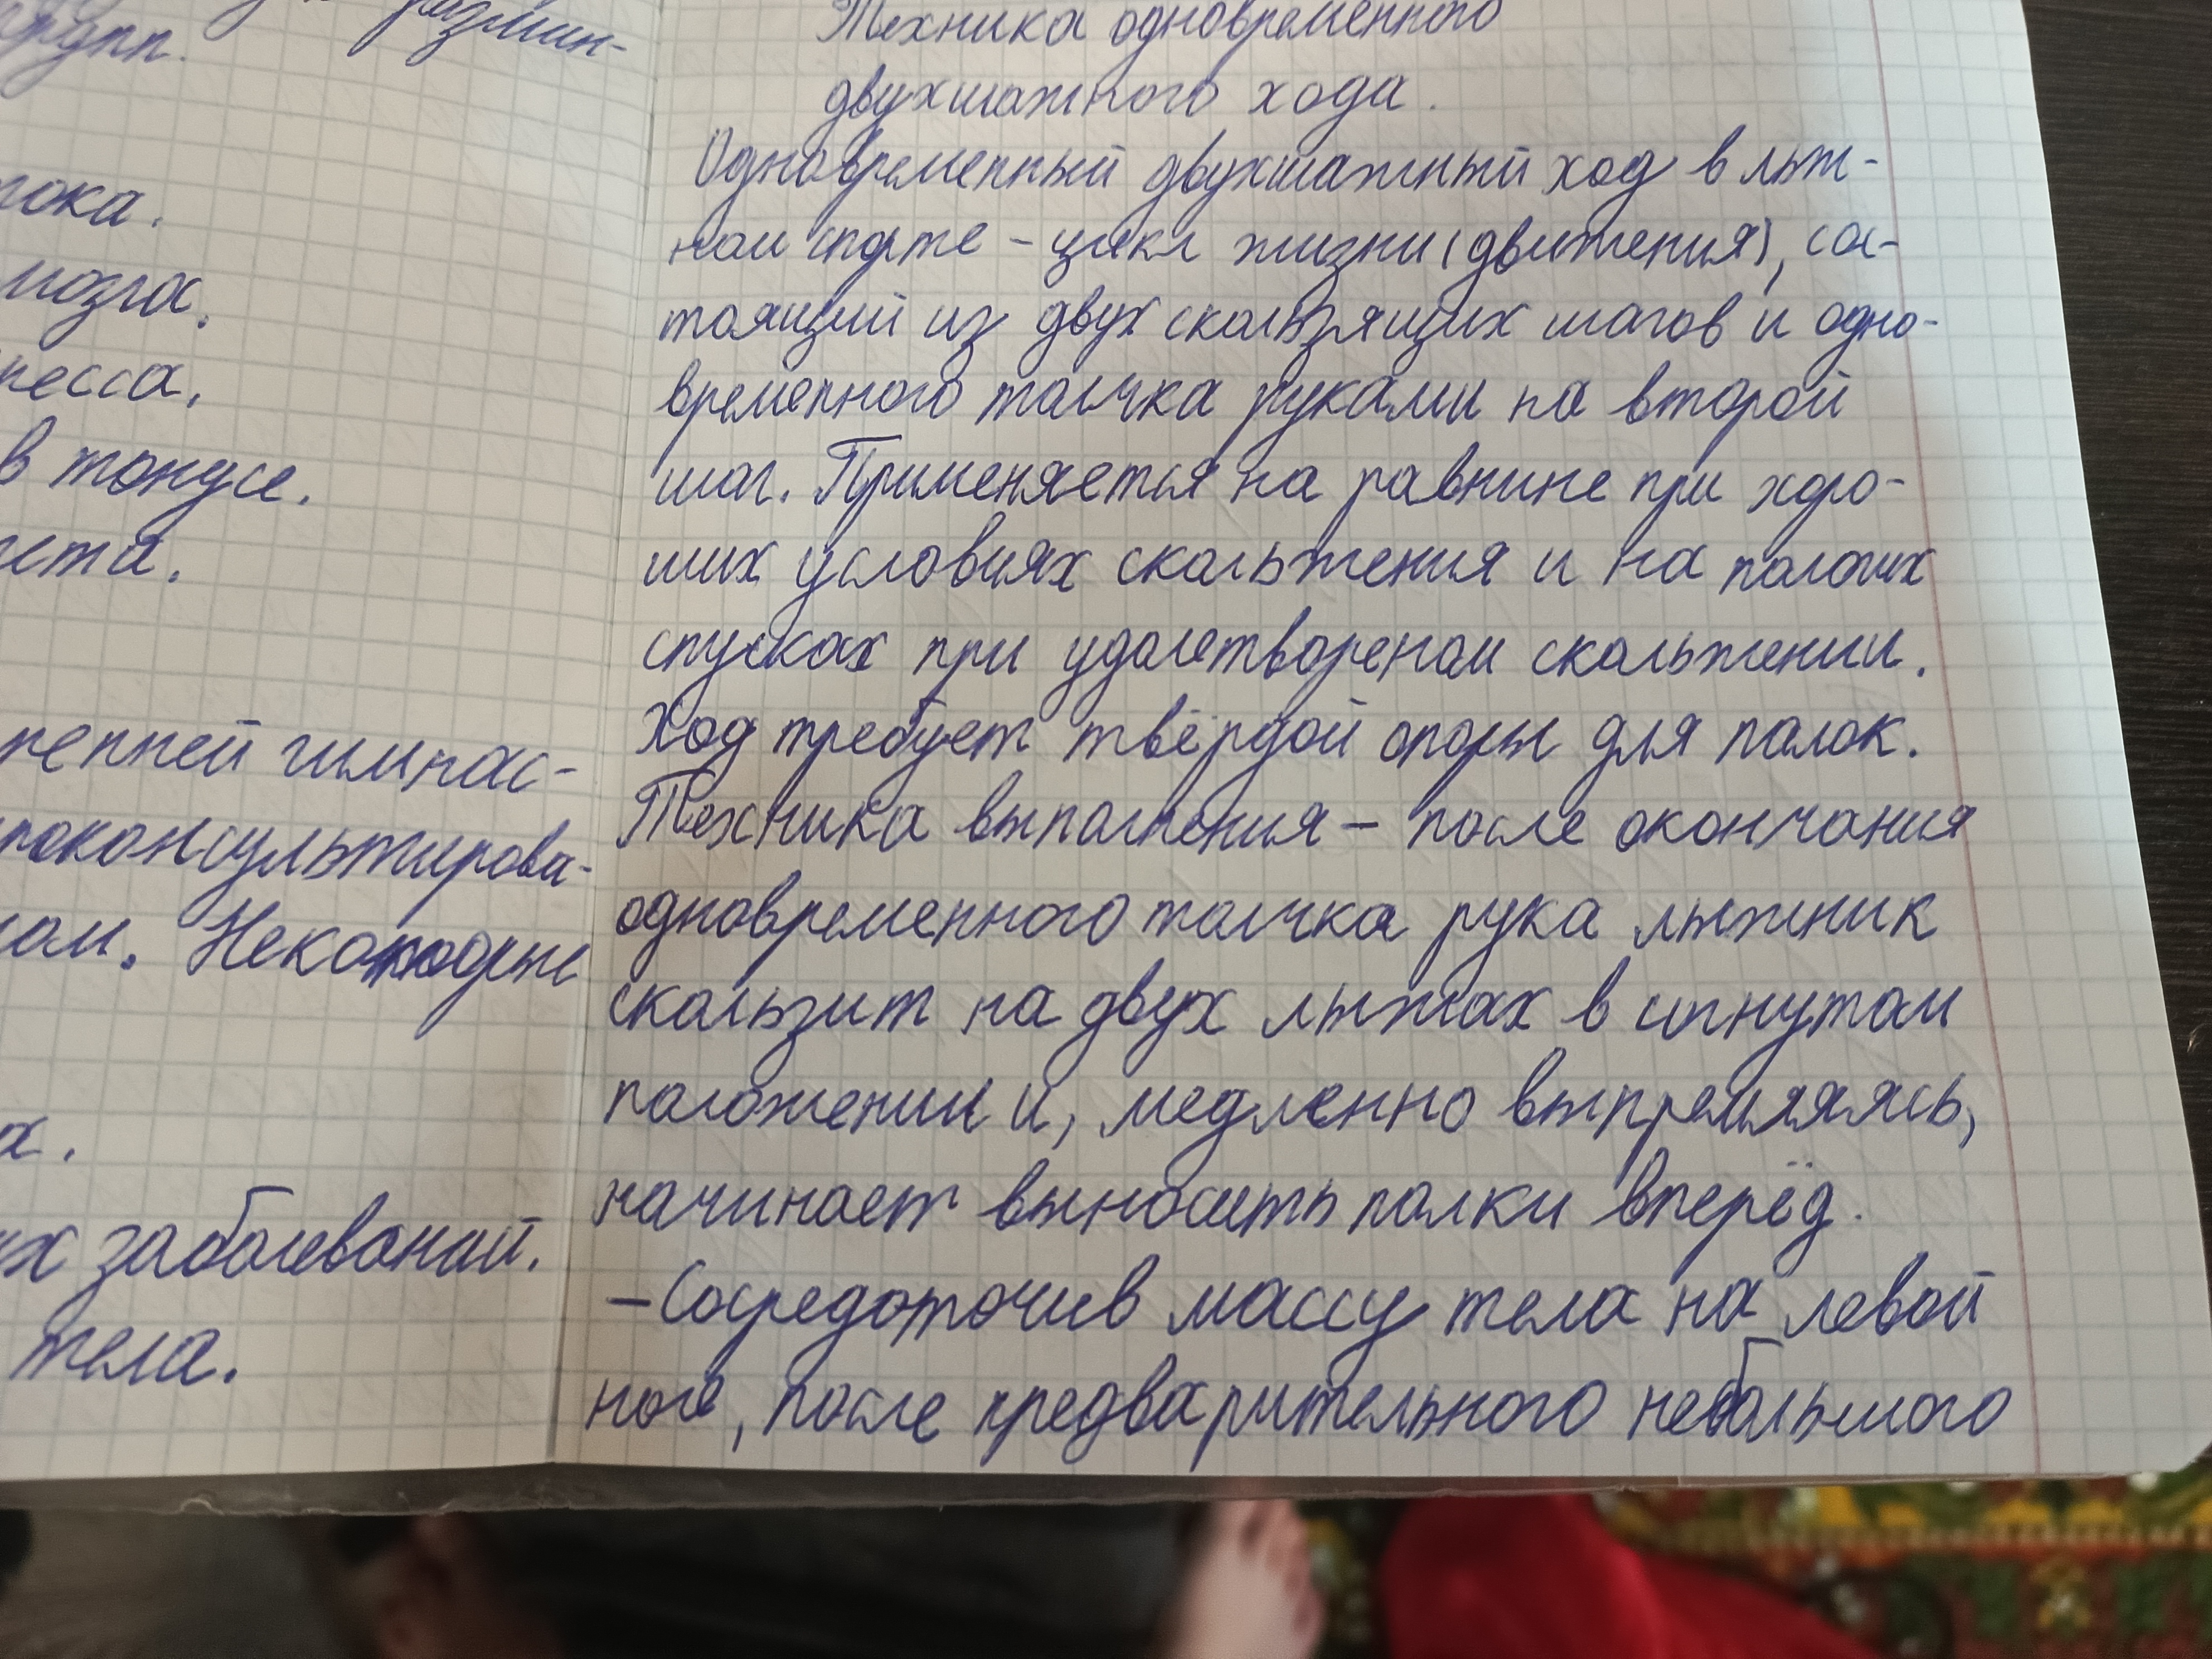 групп.
размин-
тока.
мозга.
в тонусе.
гимнас-
проконсультирова-
Некоторые
х заболеваний.
тела.
Техника одновременного
двухшажного хода.
Одновременный двухшажный ход в лыж-
ном спорте - цикл жизни (движения), сос-
тоящий из двух скользящих шагов и одно-
временного толчка руками на второй
шаг. Применяется на равнине при хоро-
ших условиях скольжения и на пологих
спусках при удолетвореном скольжении.
Ход требует твёрдой опоры для палок.
Техника выполнения - после окончания
одновременного толчка рука лыжник
скользит на двух лыжах в согнутом
положении и, медленно выпремляясь,
начинает выносить палки вперёд.
- Сосредоточив массу тела на левой
ноге, после предварительного небольшого